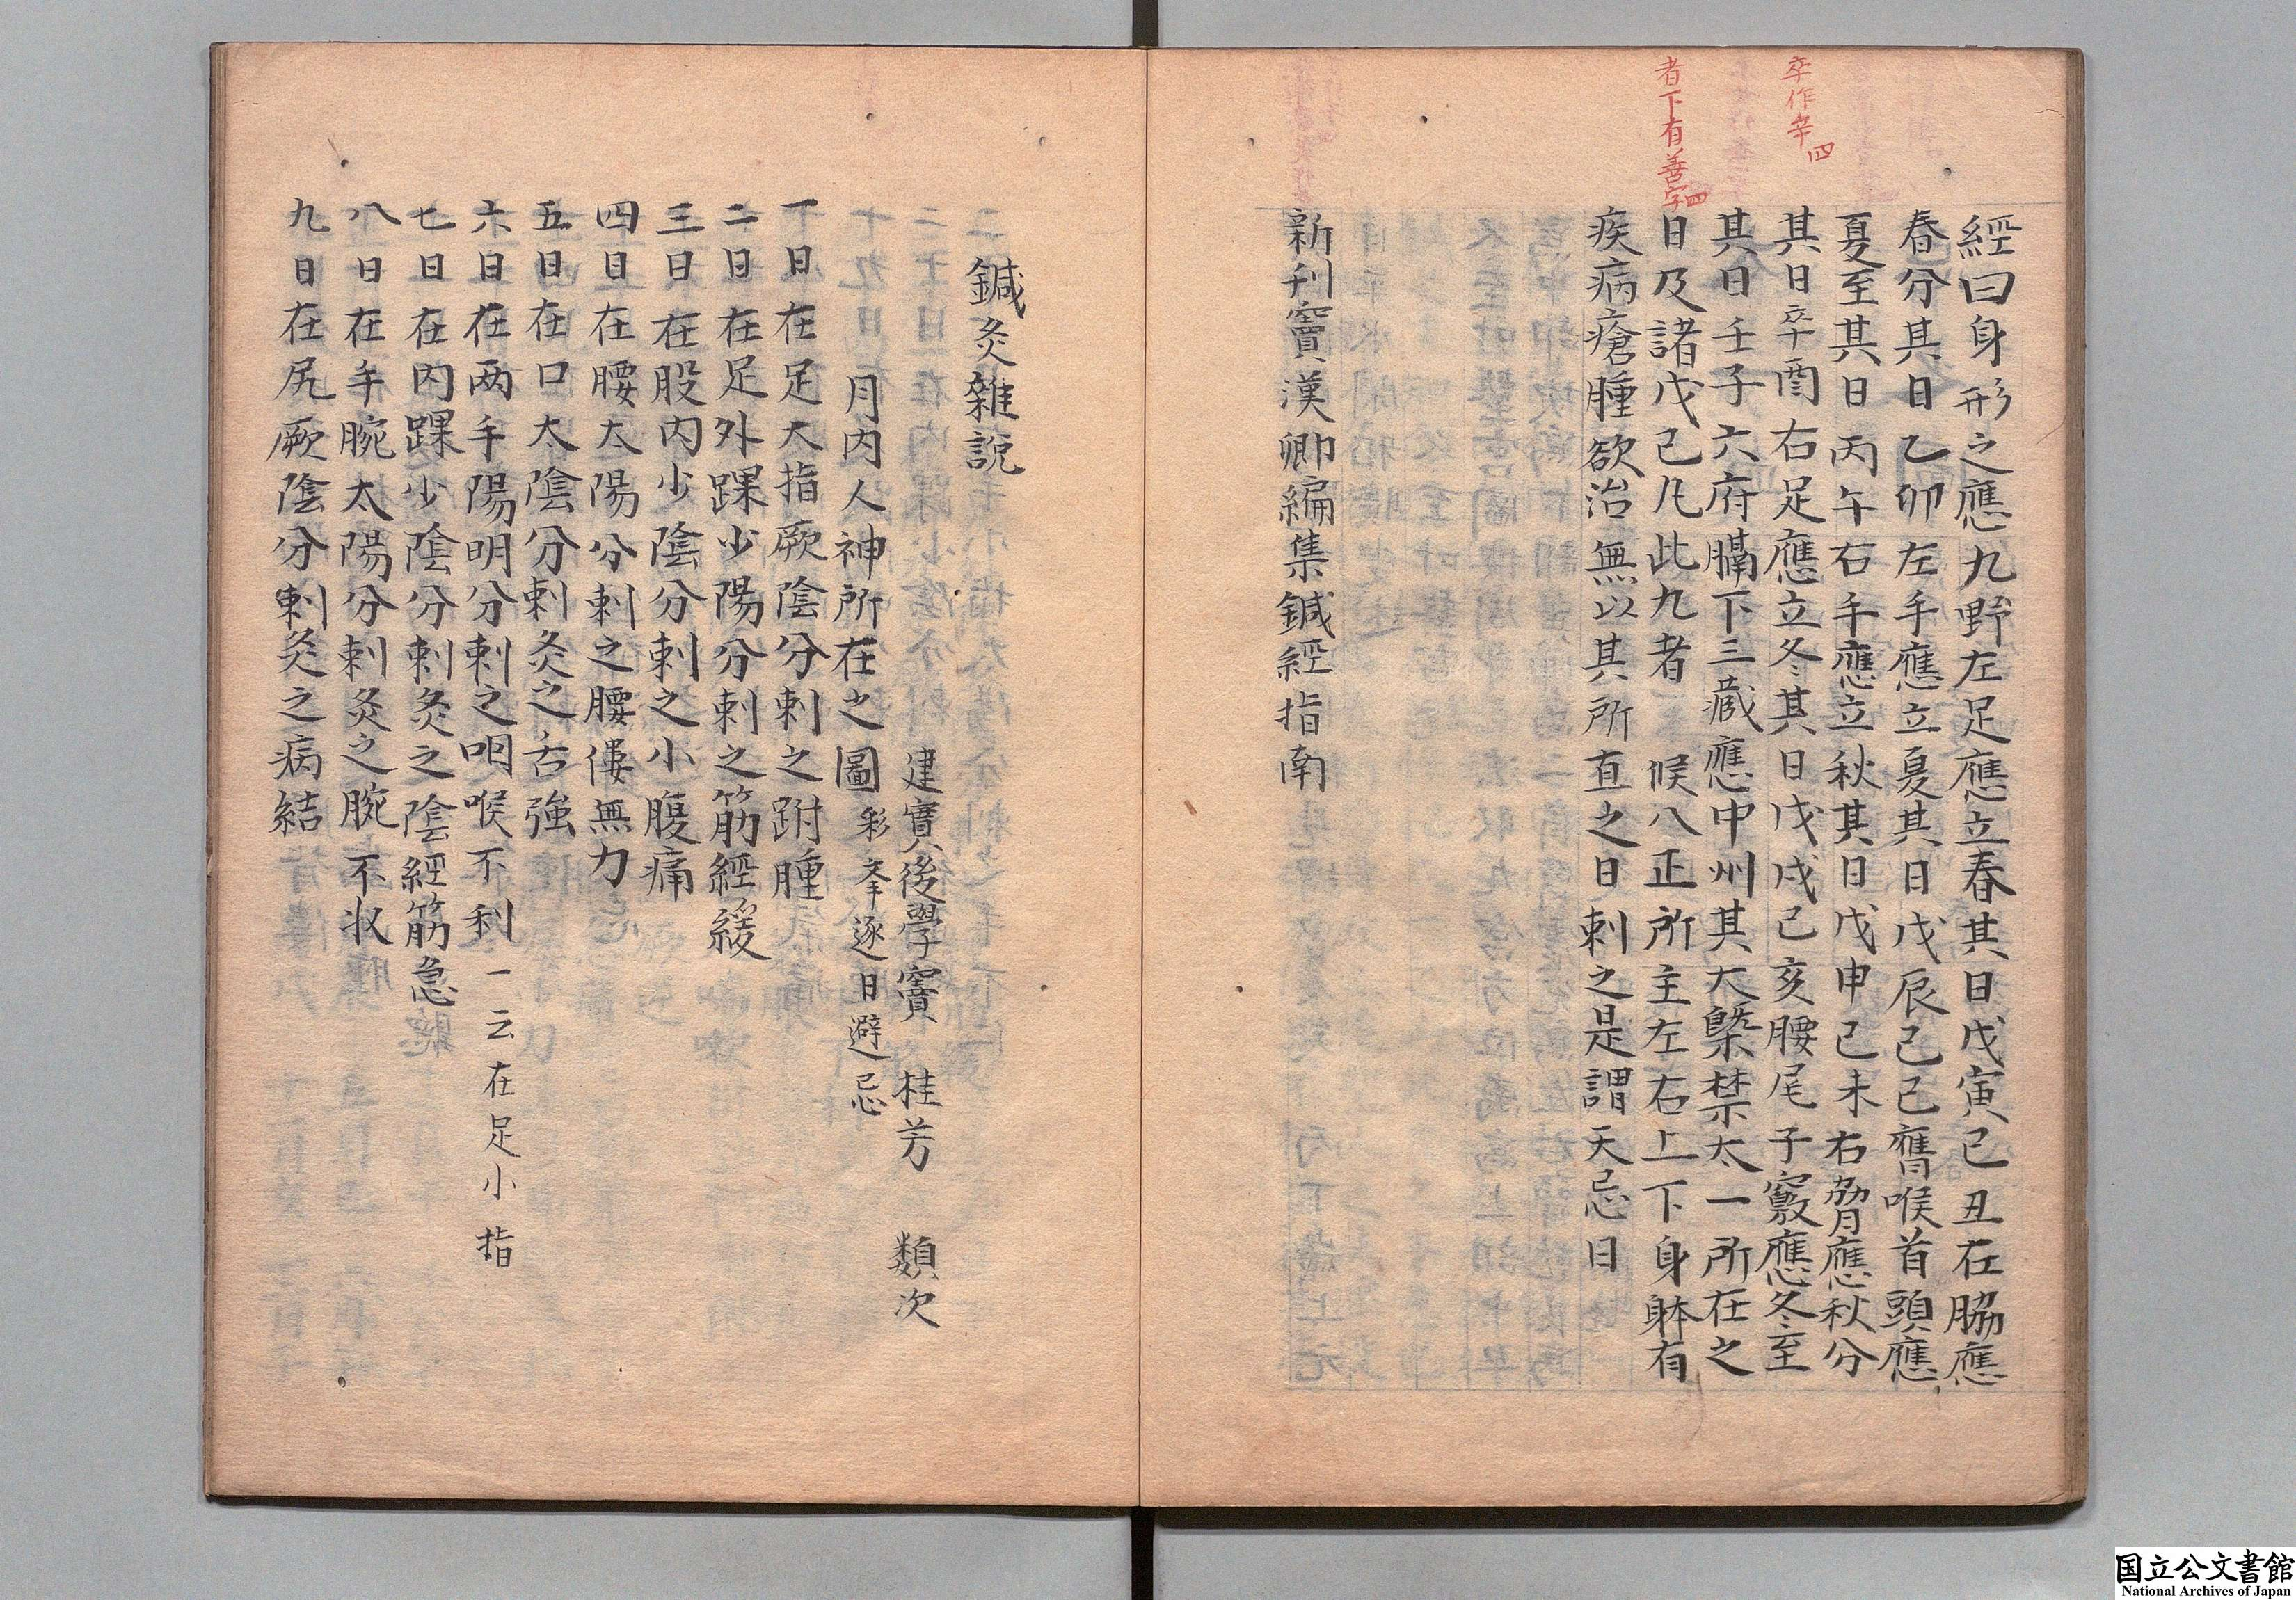 卒作辛四
者下有善字四
經曰身形之應九野左足應立春其日戊寅己丑在脇應
春分其日乙卯左手應立夏其日戊辰己巳膺喉首頭應
夏至其日丙午右手應立秋其日戊申己未右脅應秋分
其日卒酉右足應立冬其日戊戌己亥腰尾子竅應冬至
其日壬子六府膈下三藏應中州其大槩禁太一所在之
日及諸戊己凡此九者 候八正所主左右上下身躰有
疾病瘡腫欲治無以其所直之日刺之是謂天忌日
新刋竇漢卿編集鍼經指南
鍼灸雜說
建寶後學竇 桂芳 類次
月內人神所在之圖 逐日避忌
一日在足大指厥陰分刺之跗腫
二日在足外踝少陽分刺之筋經緩
三日在股內少陰分刺之小腹痛
四日在腰太陽分刺之腰僂無力
五日在口太陰分刺灸之舌強
六日在两手陽明分刺之咽喉不利 一云在足小指
七日在內踝少陰分刺灸之陰經筋急
八日在手腕太陽分刺灸之腕不收
九日在尻厥陰分刺灸之病結
国立公文書館
National Archives of Japan